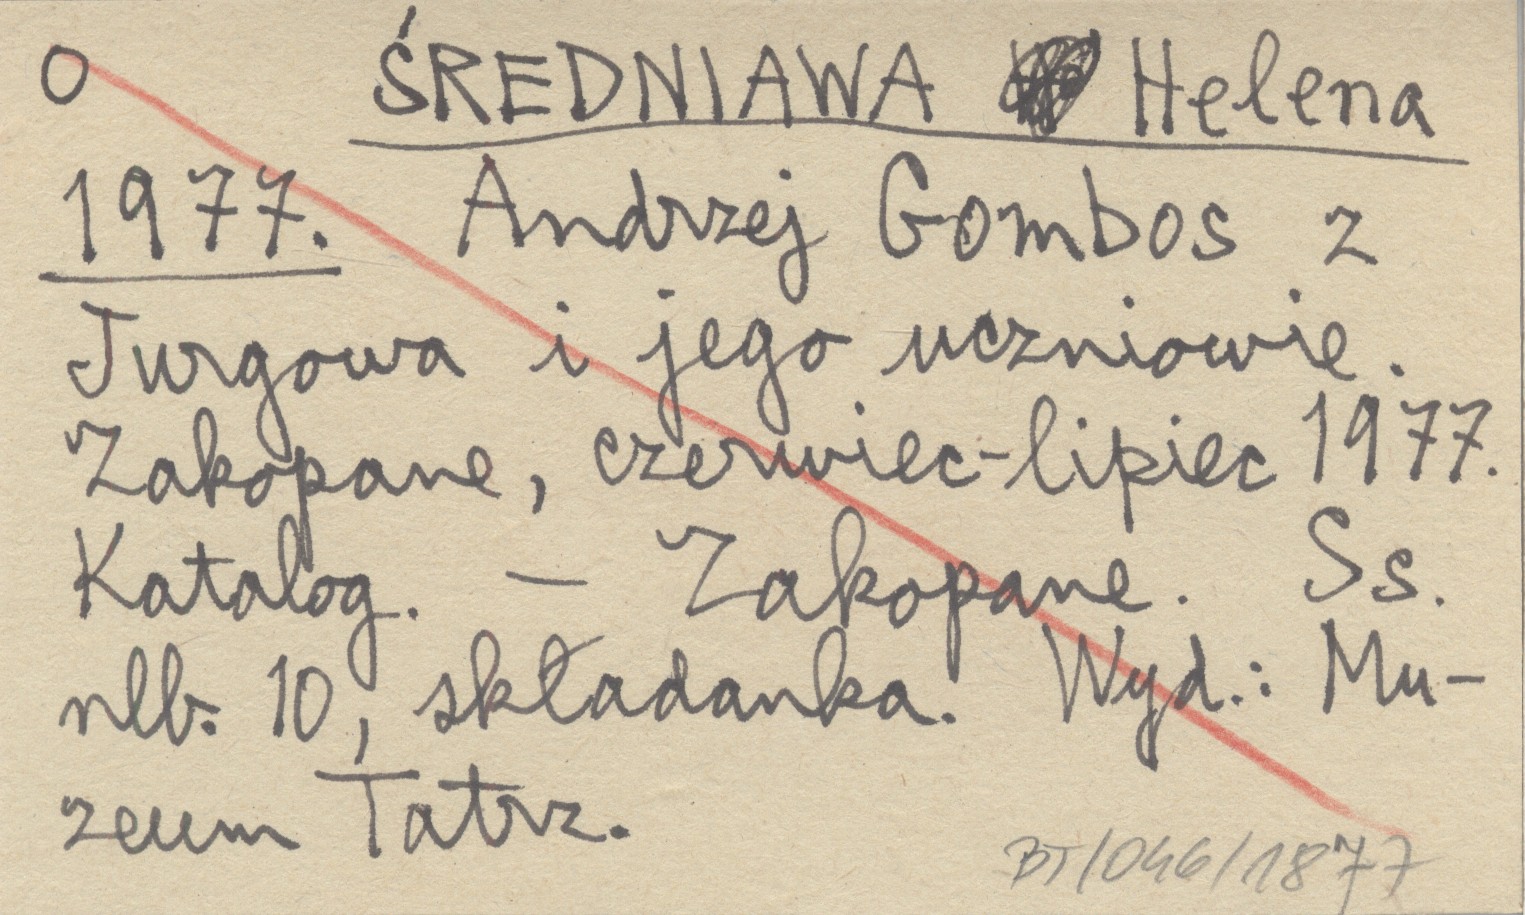 O ŚREDNIAWA Helena
1977. Andrzej Gombos z
Jurgowa i jego uczniowie.
Zakopane, czerwiec-lipiec 1977.
Katalog. — Zakopane. Ss.
nlb. 10, składanka. Wyd.: Mu-
zeum Tatrz.
BT/046/1877